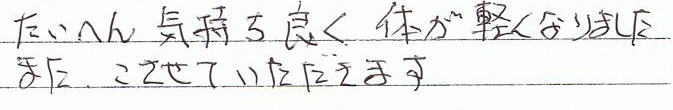 たいへん 気持ち良く 体が軽くなりました
また、こさせていただきます